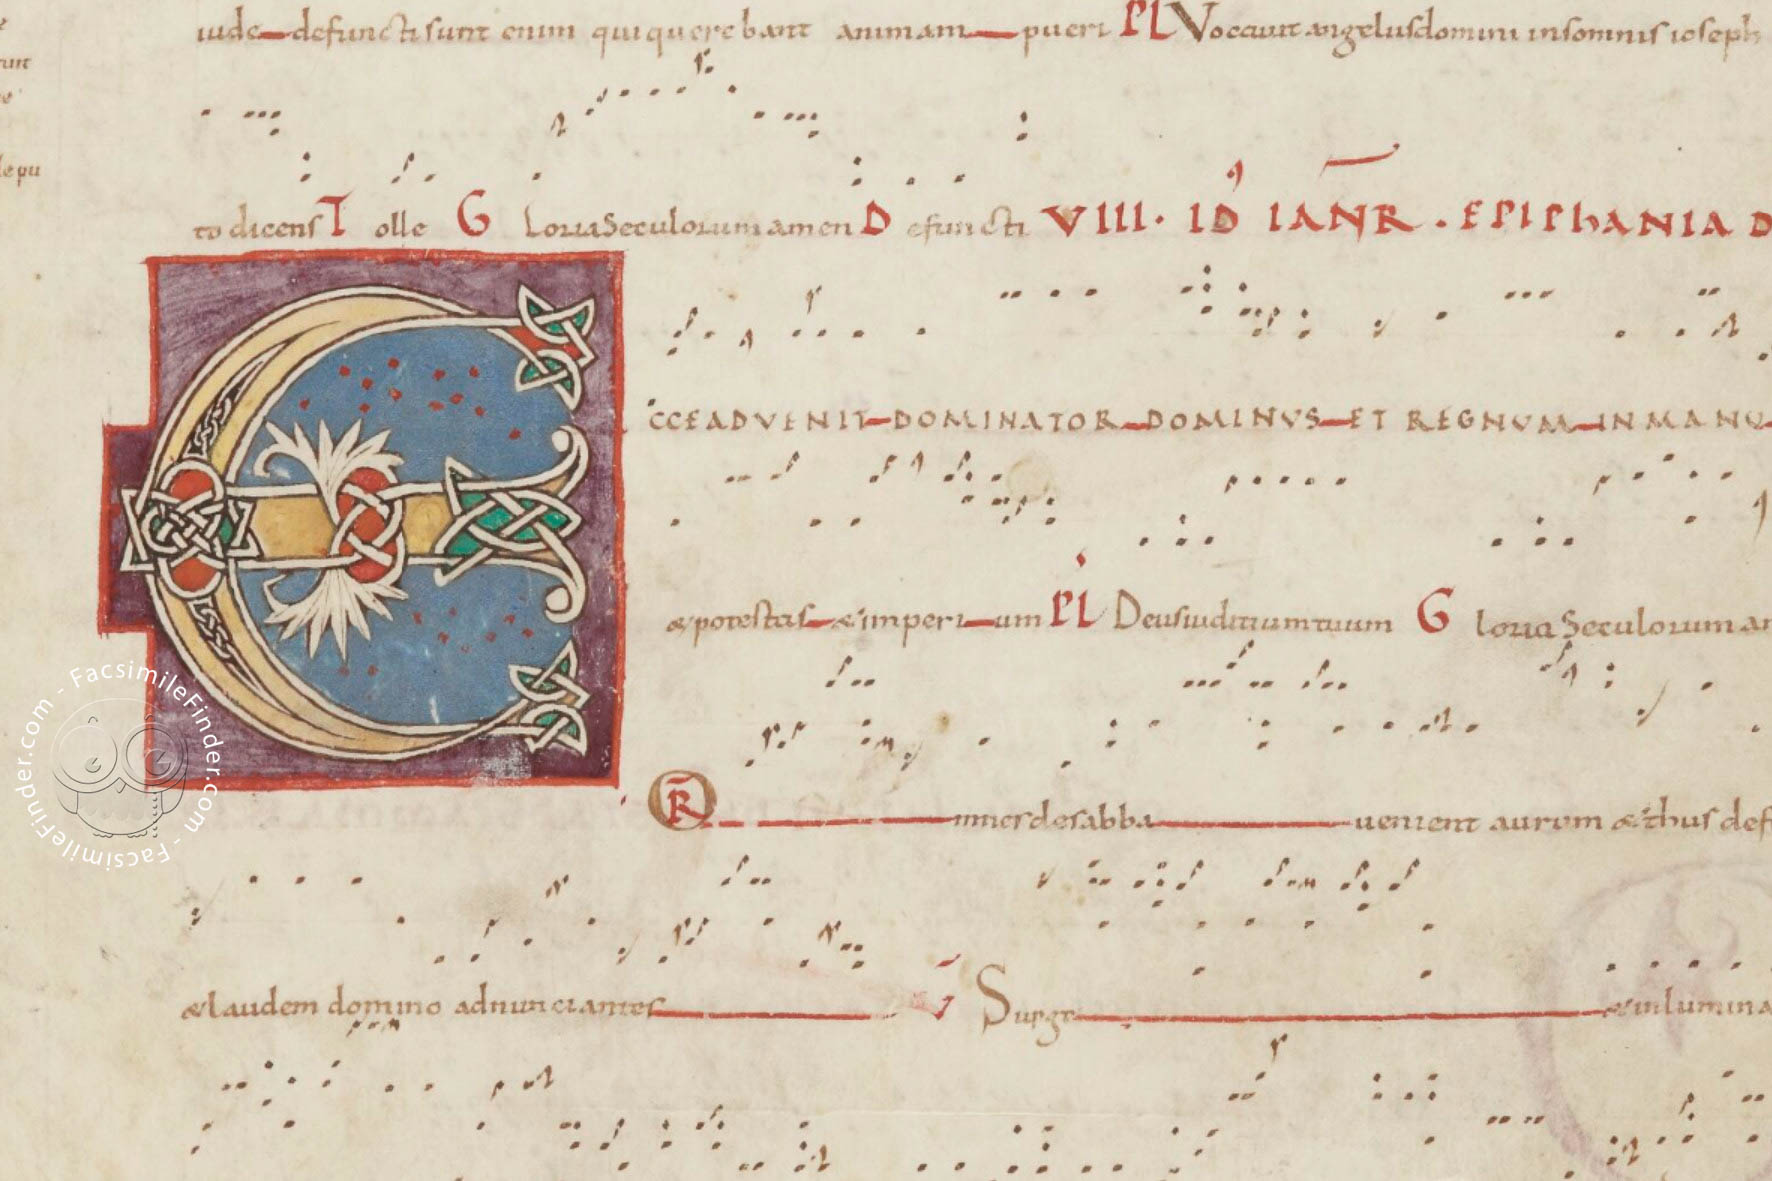 iude defuncti sunt enim qui querebant animam pueri PL Vocavit angelus domini in somnis ioseph
to dicens Tolle Gloria Seculorum amen Defuncti VIII. ID IANR. EPIPHANIA D
ECCE ADVENIT DOMINATOR DOMINVS ET REGNVM IN MANU
& potestas & imperium PL Deus iuditium tuum Gloria Seculorum am
R Omnes de sabba venient aurum & thus def
& laudem domino adnunciantes V Surge & inlumina
FacsimileFinder.com - FacsimileFinder.com -